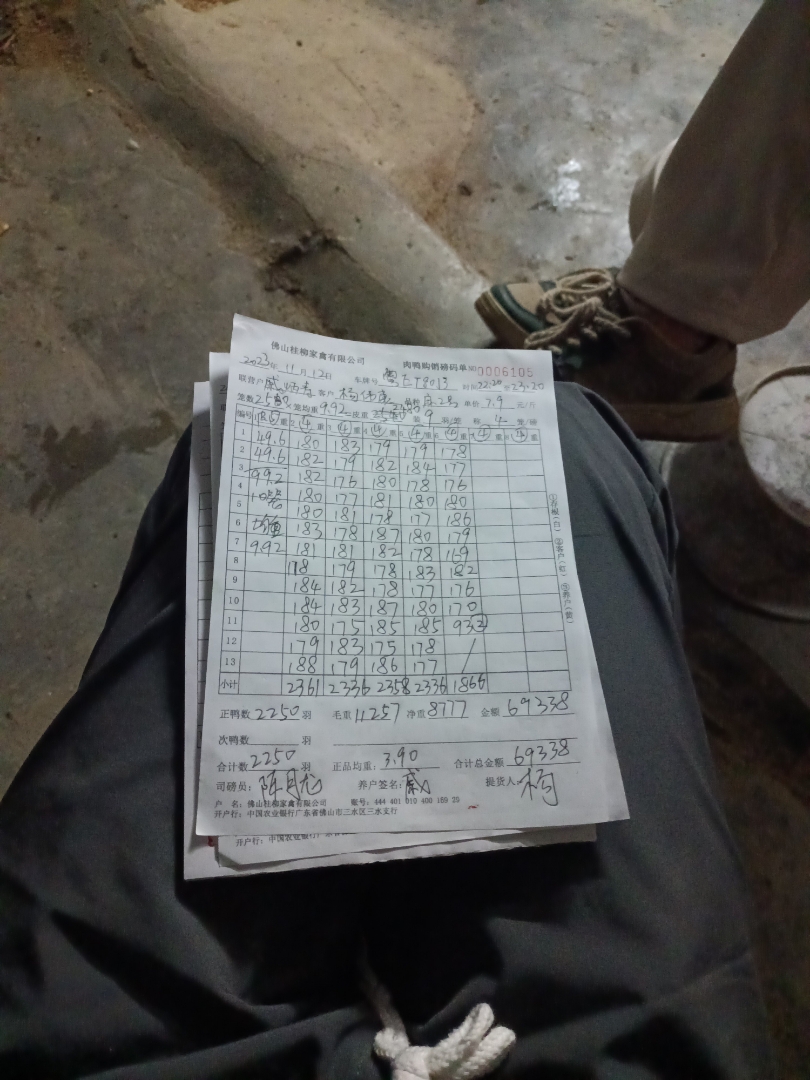 佛山桂柳家禽有限公司 肉鸭购销磅码单 NO 0006105
2023年 11月 12日 车牌号 时间
联营户 客户 单价 7.9 元/斤
笼数 × 笼均重 9.92 = 皮重 9 4
编号 重 ④重 ④重 ④重 ④重 ④重 ④重 ④重
1 49.6 180 183 179 179 178
2 49.6 182 179 182 184 177
3 99.2 182 176 180 178 176
4 180 177 181 180 180
5 180 181 178 177 186
6 183 178 187 180 179
7 9.92 181 181 182 178 169
8 179 178 183 182
9 184 182 178 177 176
10 184 183 187 180 170
11 180 175 185 185 93
12 179 183 175 178 /
13 188 179 186 177
小计 2361 2336 2358 2336 1866
正鸭数 2250 羽 毛重 11257 净重 8777 金额 69338
次鸭数 羽
合计数 2250 羽 正品均重: 3.90 合计总金额 69338
司磅员: 陈月龙 养户签名: 提货人: 杨
户 名: 佛山桂柳家禽有限公司 账号: 444 401 010 400 159 25
开户行: 中国农业银行广东省佛山市三水区三水支行
开户行: 中国农业银行广东